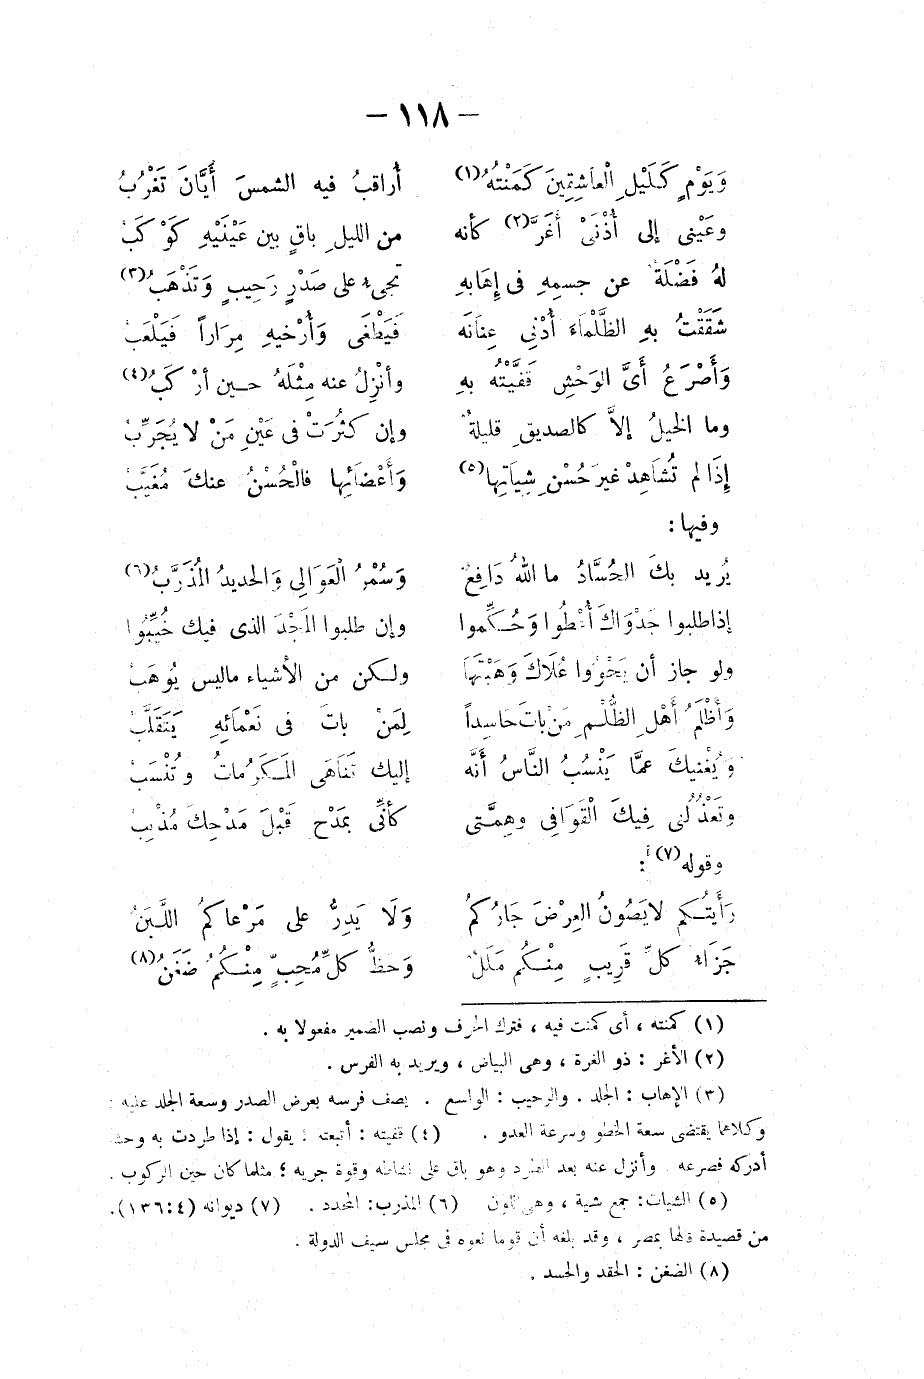 – ١١٨ –
وَيَوْمٍ كَلَيْلِ الْعاشِقِينَ كَمَنْتُهُ(١) أُراقبُ فيه الشمسَ أَيَّانَ تَغْرُبُ
وعَيْنى إلى أُذْنَىْ أَغَرَّ(٢) كأنه من الليلِ باقٍ بين عَيْنَيْهِ كَوْكَبُ
لهُ فَضْلَةٌ عن جسمِهِ فى إِهَابِهِ تجىءُ على صَدْرٍ رَحِيبٍ وَتَذْهَبُ(٣)
شَقَقْتُ بهِ الظَّلْمَاءَ أُدْنِى عِنَانَه فَيَطْغَى وَأُرْخيهِ مِرَاراً فَيَلْعَبُ
وَأَصْرَعُ أَىَّ الوَحْشِ قَفَّيْتُهُ بهِ وأنْزِلُ عنه مِثْلَهُ حين أرْكَبُ(٤)
وما الخيلُ إلاَّ كالصديقِ قليلةٌ وإن كثُرَتْ فى عَيْنِ مَنْ لا يُجَرِّبُ
إِذَا لم تُشَاهِدْ غيرَ حُسْنِ شِيَاتِها(٥) وَأَعْضَائِها فالْحُسْنُ عنكَ مُغَيَّبُ
وفيها :
يُريد بكَ الحُسَّادُ ما اللهُ دَافِعٌ وَسُمْرُ الْعَوَالِى وَالحديدُ المُذَرَّبُ(٦)
إذا طلبوا جَدْوَاكَ أُعْطُوا وَحُكِّموا وإن طلبوا المَجْدَ الذى فيك خُيِّبُوا
ولو جاز أن يَحْوُوا عُلاَكَ وَهَبْتَهَا ولكن من الأشياء ماليس يُوهَبُ
وَأَظْلَمُ أَهْلِ الظُّلْمِ مَنْ باتَ حَاسِداً لِمَنْ باتَ فى نَعْمَائِهِ يَتَقَلَّبُ
وَيُغْنيكَ عمَّا يَنْسُبُ النَّاسُ أَنَّه إليك تَنَاهَى المَكرُماتُ وتُنْسَبُ
وتَعْذُلُنى فِيكَ الْقَوَافِى وهِمَّتى كأنِّى بمَدْحٍ قَبْلَ مَدْحِكَ مُذْنِبُ
وقوله(٧) :
رَأَيتُكم لايَصُونُ العِرْضَ جَارُكمُ وَلَا يَدِرُّ على مَرْعاكمُ اللَّبَنُ
جَزَاءُ كلِّ قَرِيبٍ مِنْكم مَلَلٌ وَحَظُّ كلِّ مُحِبٍّ مِنْكُمُ ضَغَنُ(٨)
(١) كمنته ، أى كمنت فيه ، فترك الحرف ونصب الضمير مفعولا به .
(٢) الأغر : ذو الغرة ، وهى البياض ، ويريد به الفرس .
(٣) الإهاب : الجلد . والرحيب : الواسع . يصف فرسه بعرض الصدر وسعة الجلد عليه :
وكلاهما يقتضى سعة الخطو وسرعة العدو . (٤) قفيته : أتبعته : يقول : إذا طردت به وحشا
أدركه فصرعه وأنزل عنه بعد الطرد وهو باق على نشاطه وقوة جريه ؛ مثلما كان حين الركوب .
(٥) الشيات: جمع شية ، وهى اللون (٦) المذرب: المحدد . (٧) ديوانه (٤ : ١٣٦).
من قصيدة قالها بمصر ، وقد بلغه أن قوما نعوه فى مجلس سيف الدولة .
(٨) الضغن : الحقد والحسد .